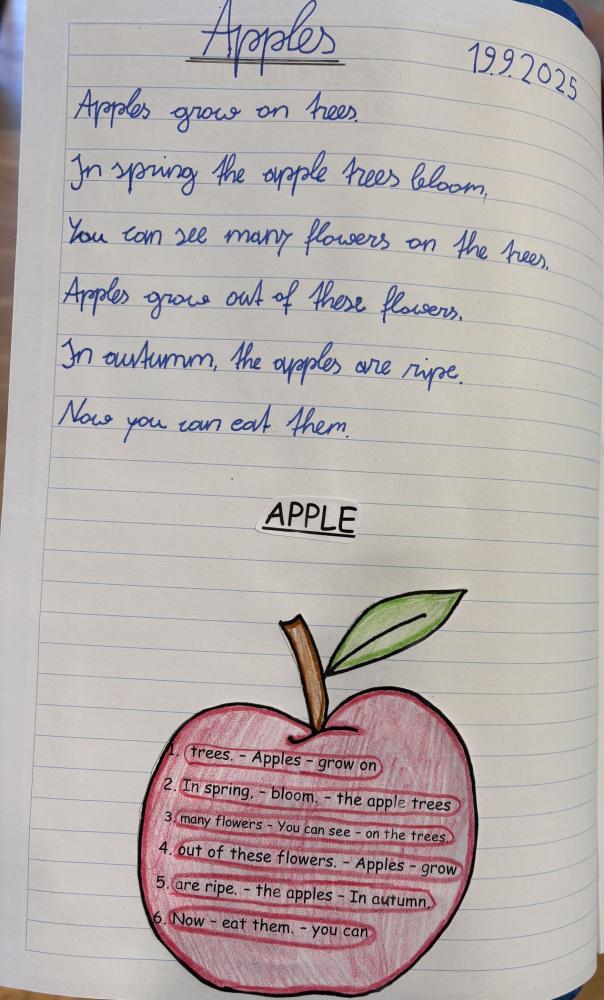 Apples
19.9.2025
Apples grow on trees.
In spring the apple trees bloom.
You can see many flowers on the trees.
Apples grow out of these flowers.
In autumn, the apples are ripe.
Now you can eat them.
APPLE
1. trees. - Apples - grow on
2. In spring, - bloom. - the apple trees
3. many flowers - You can see - on the trees.
4. out of these flowers. - Apples - grow
5. are ripe. - the apples - In autumn,
6. Now - eat them. - you can